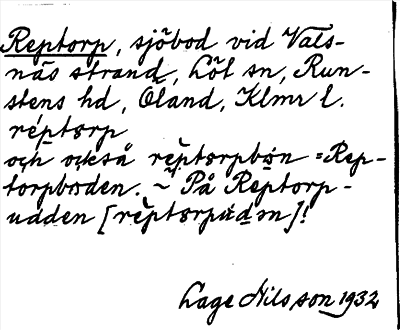 Reptorp, sjöbod vid Vals-
näs strand, Löt sn, Run-
stens hd, Öland, Klmr l.
réptɷrp
och också rèptɷrpbón = Rep-
torpboden. ~ På Reptorp-
udden [rèptɷrpúdən]!
Lage Nilsson 1932